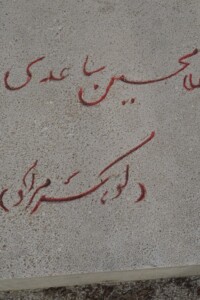 لامحسین ساعدی
(گوهر مراد)